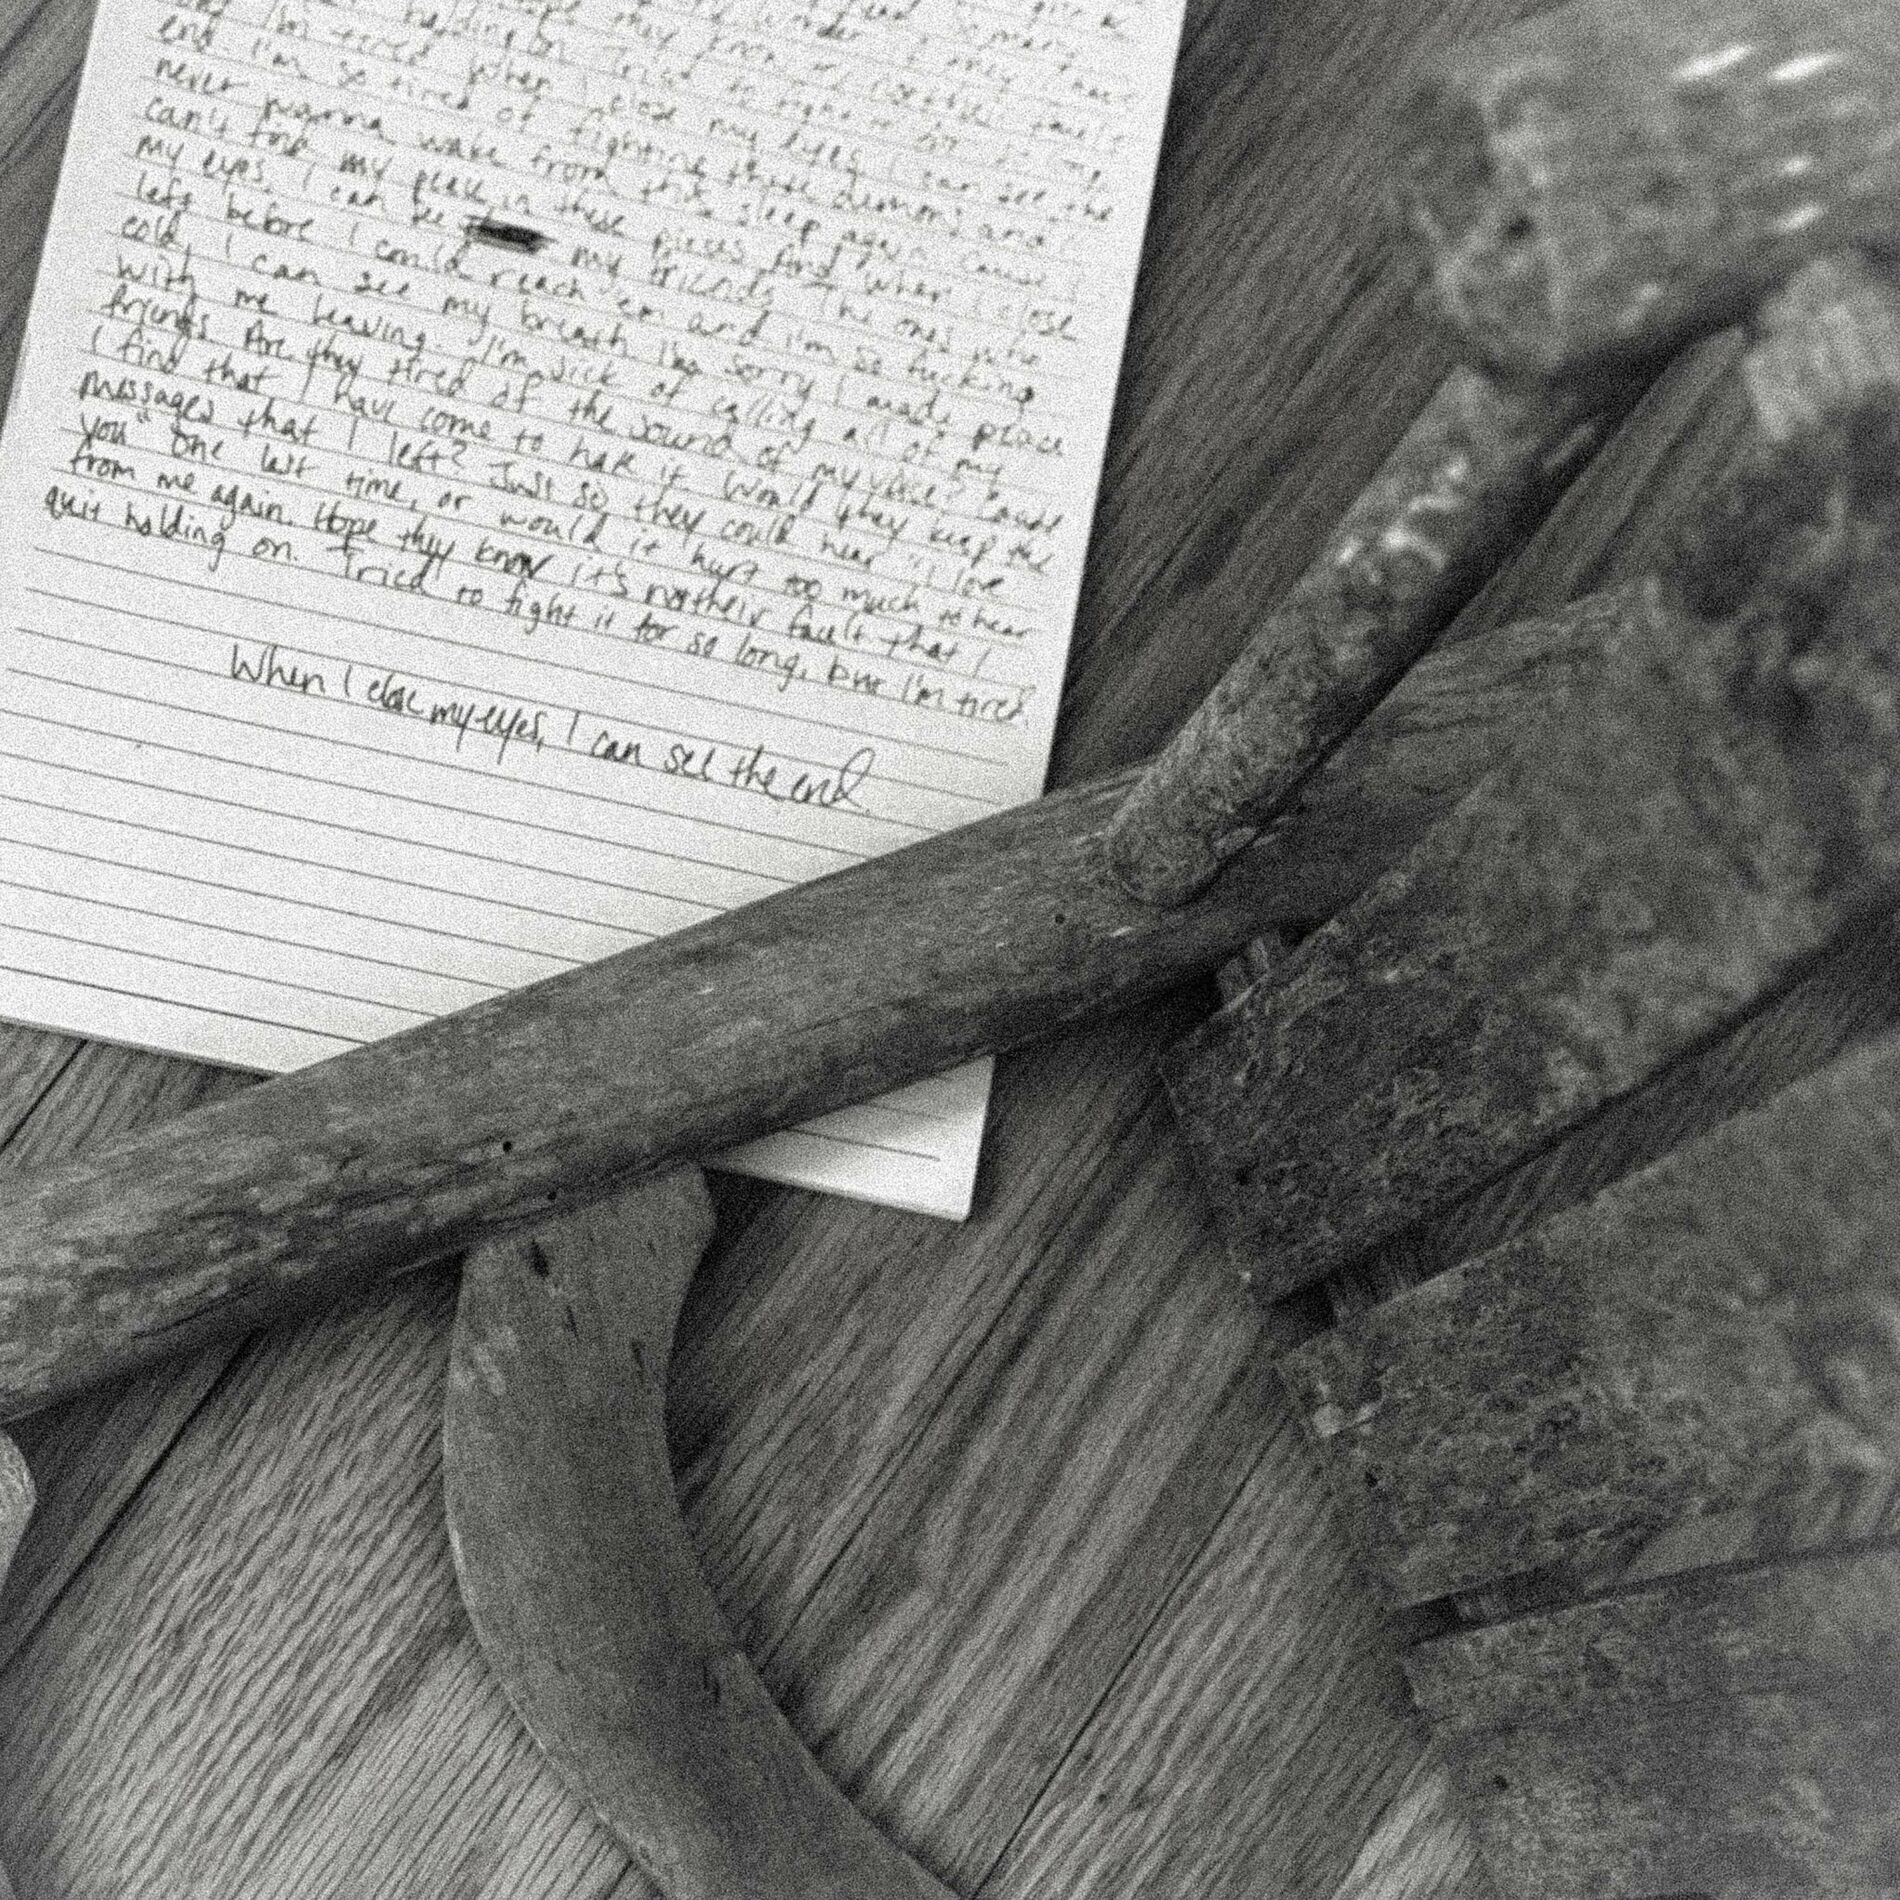 quit holding on. Tried to fight it for so long,
and I'm tired. When I close my eyes I can see the
end. I'm so tired of fighting these demons and I
never wanna wake from this sleep again cause I
can't find my peace in these pieces. And when I close
my eyes, I can see my friends. The ones who
left before I could reach 'em and I'm so fucking
cold, I can see my breath. I'm sorry I made peace
with me leaving. I'm sick of calling all of my
friends. Are they tired of the sound of my voice? Cause
I find that I have come to hate it. Would they keep the
messages that I left? Just so they could hear "I love
you" one last time, or would it hurt too much to hear
from me again. Hope they know it's not their fault that I
quit holding on. Tried to fight it for so long, but I'm tired.
When I close my eyes, I can see the end.